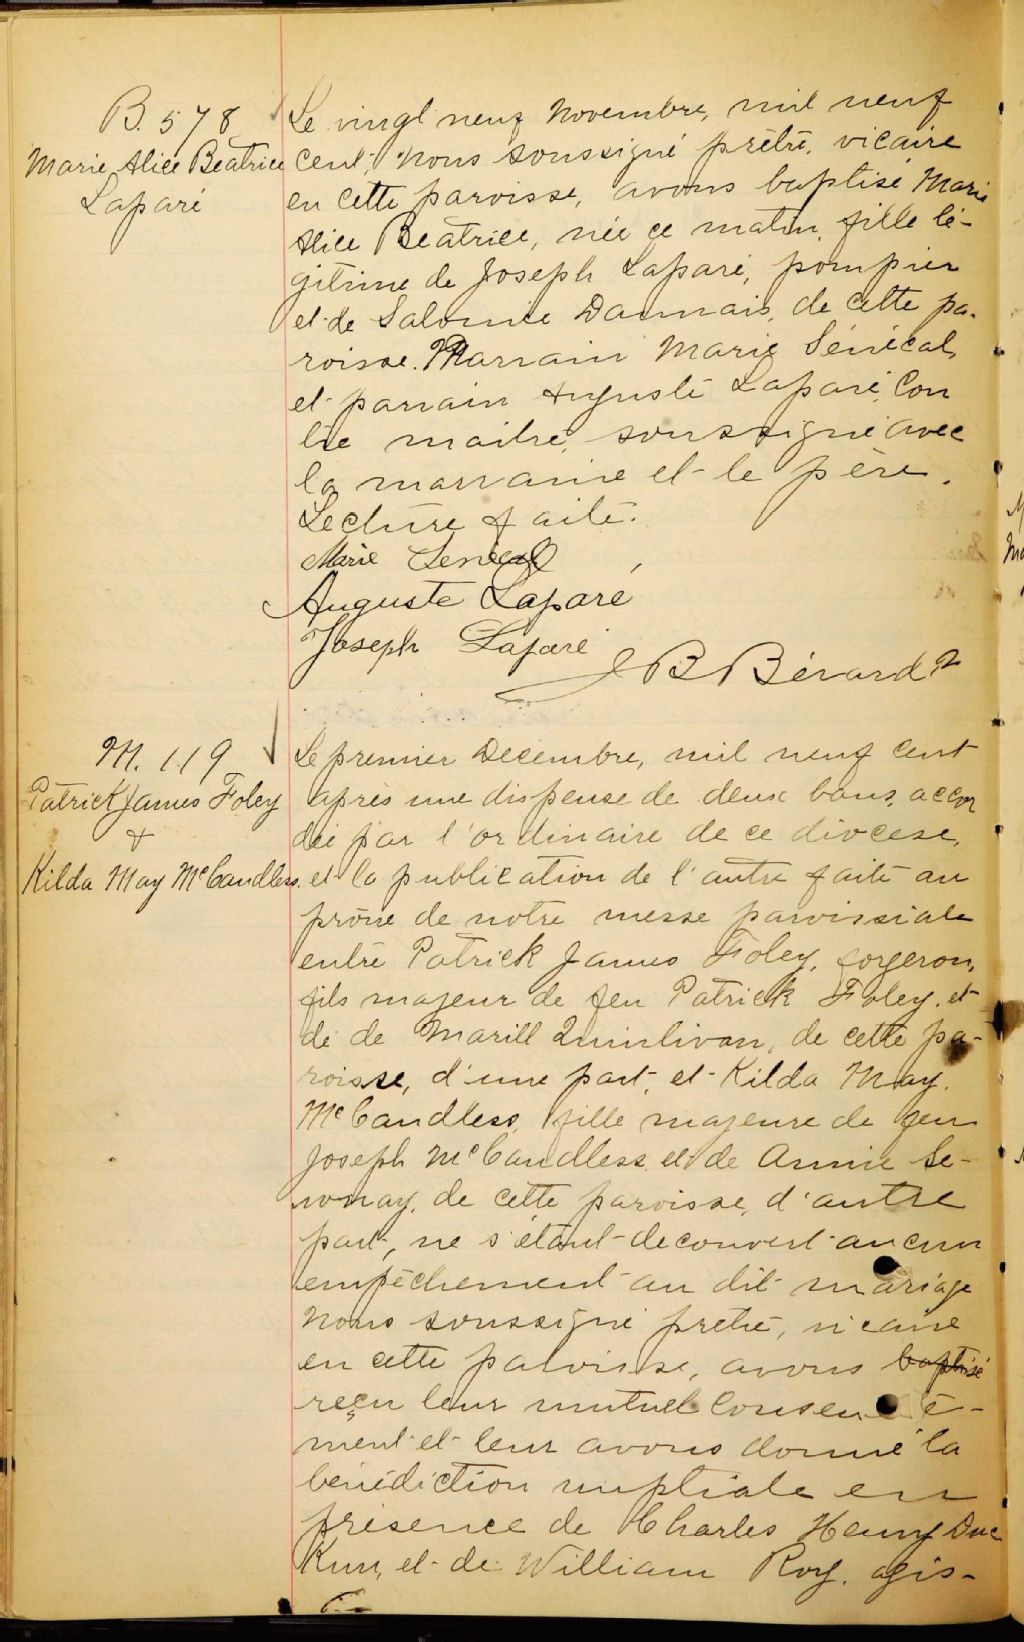 B. 578
Marie Alice Beatrice
Laparé
Le vingt neuf Novembre, mil neuf
cent, Nous soussigné prêtre, vicaire
en cette paroisse, avons baptisé Marie
Alice Beatrice, née ce matin, fille lé-
gitime de Joseph Laparé, pompier
et de Salomée Daunais, de cette pa-
roisse. Marrain Marie Sénécal,
et parrain Auguste Laparé, Con
tre maitre, soussigné avec
la marraine et le père.
Lecture faite.
Marie Senécal
Auguste Laparé
Joseph Laparé
JB Bérard
M. 119
Patrick James Foley
&
Kilda May McCandless
Le premier Décembre, mil neuf cent
après une dispense de deux bans, accor
dée par l'ordinaire de ce diocèse,
et la publication de l'autre faite au
prône de notre messe paroissiale
entre Patrick James Foley, forgeron,
fils majeur de feu Patrick Foley, et
de de Marill Quinlivan, de cette pa-
roisse, d'une part, et Kilda May.
McCandless, fille majeure de feu
Joseph McCandless et de Annie Se-
de cette paroisse, d'autre
part, ne s'étant decouvert aucun
empêchement au dit mariage
Nous soussigné prêtre, vicaire
en cette paroisse, avons baptisé
reçu leur mutuel consente-
ment et leur avons donné la
bénédiction nuptiale en
présence de Charles Henry Duc
Kun, et de William Roy. agis-